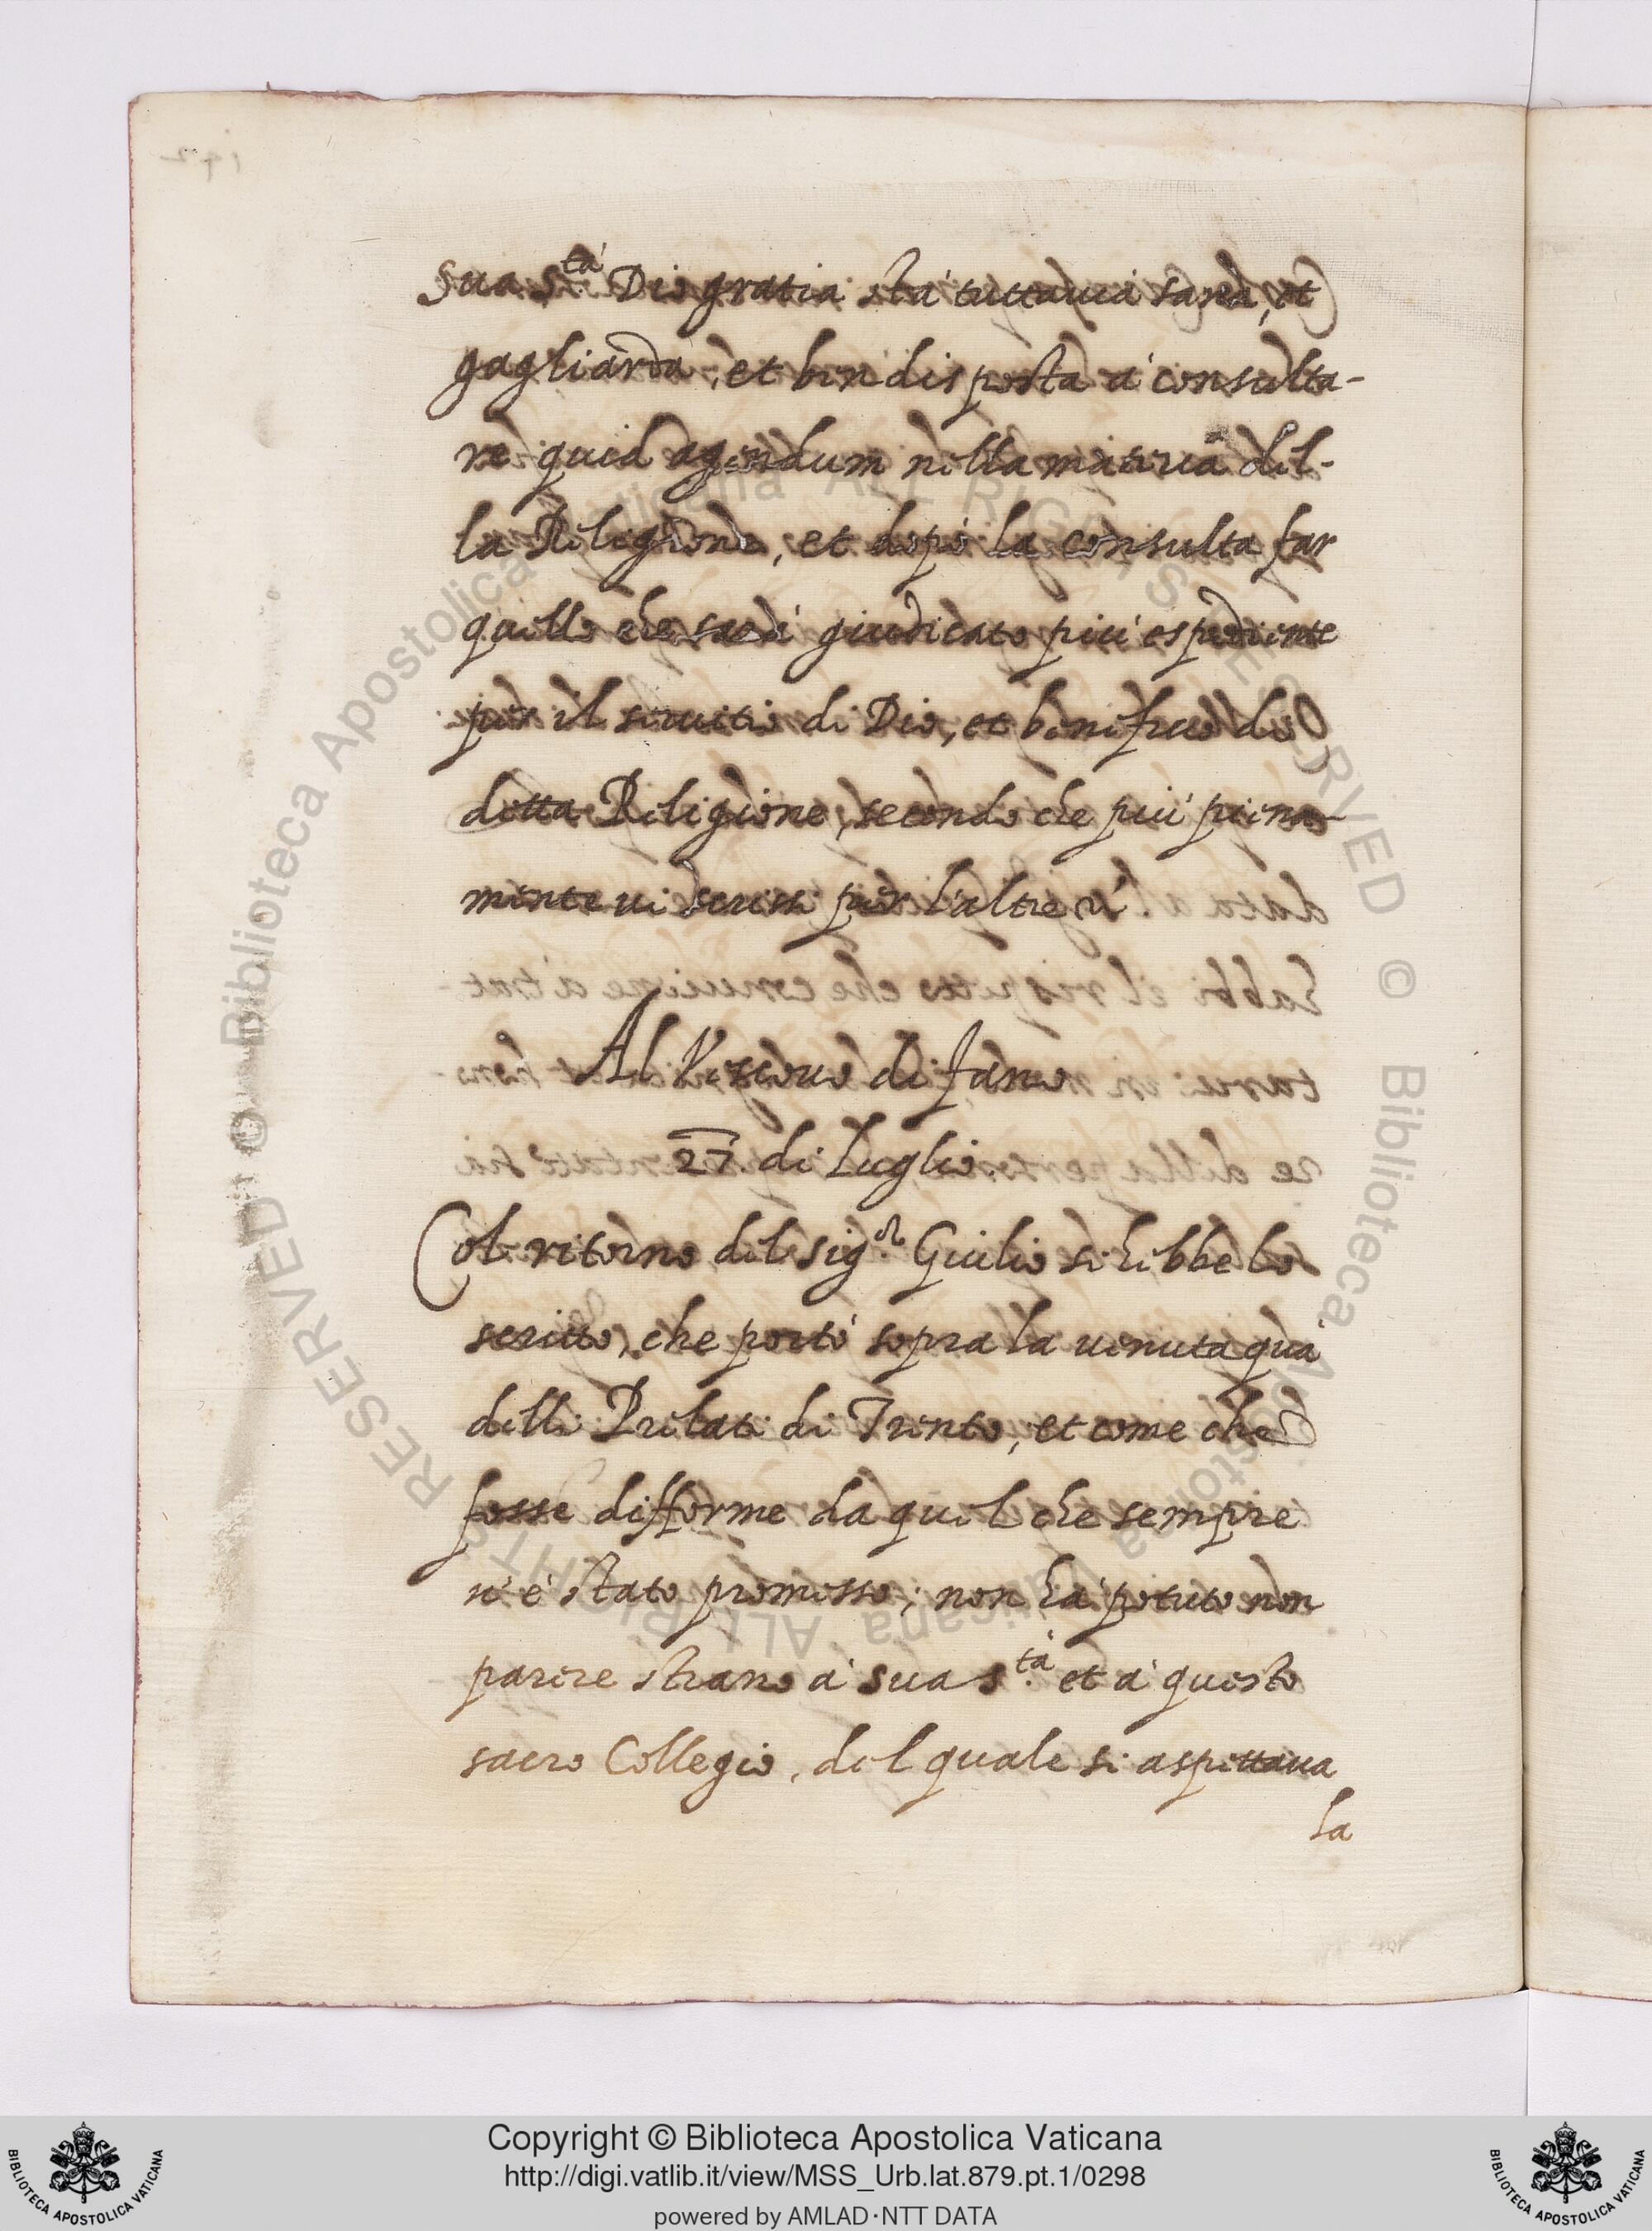 Sua S.tà Dio gratia stà tuttauia sana, et
gagliarda, et ben disposta à consulta-
re quid agendum nella materia del-
la Religione, et dopò la consulta far
quello che sarà giudicato più espediente
per il seruitio di Dio, et beneficio di
detta Religione, secondo che più piena-
mente ui scrissi per l'altre
Al Vescouo di Fano
27 di Luglio
Col ritorno del sig.r Giulio si hebbe lo
scritto, che portò sopra la uenuta quà
delli Prelati di Trento, et come che
fosse difforme da quel che sempre
n'è stato promesso; non hà potuto non
parere strano à sua S.tà et à questo
sacro Collegio, del quale si aspettaua
la
RESERVED © Biblioteca Apostolica Vaticana ALL RIGHTS RESERVED © Biblioteca Apostolica Vaticana ALL RIGHTS
Copyright © Biblioteca Apostolica Vaticana
http://digi.vatlib.it/view/MSS_Urb.lat.879.pt.1/0298
powered by AMLAD·NTT DATA
BIBLIOTECA APOSTOLICA VATICANA
BIBLIOTECA APOSTOLICA VATICANA